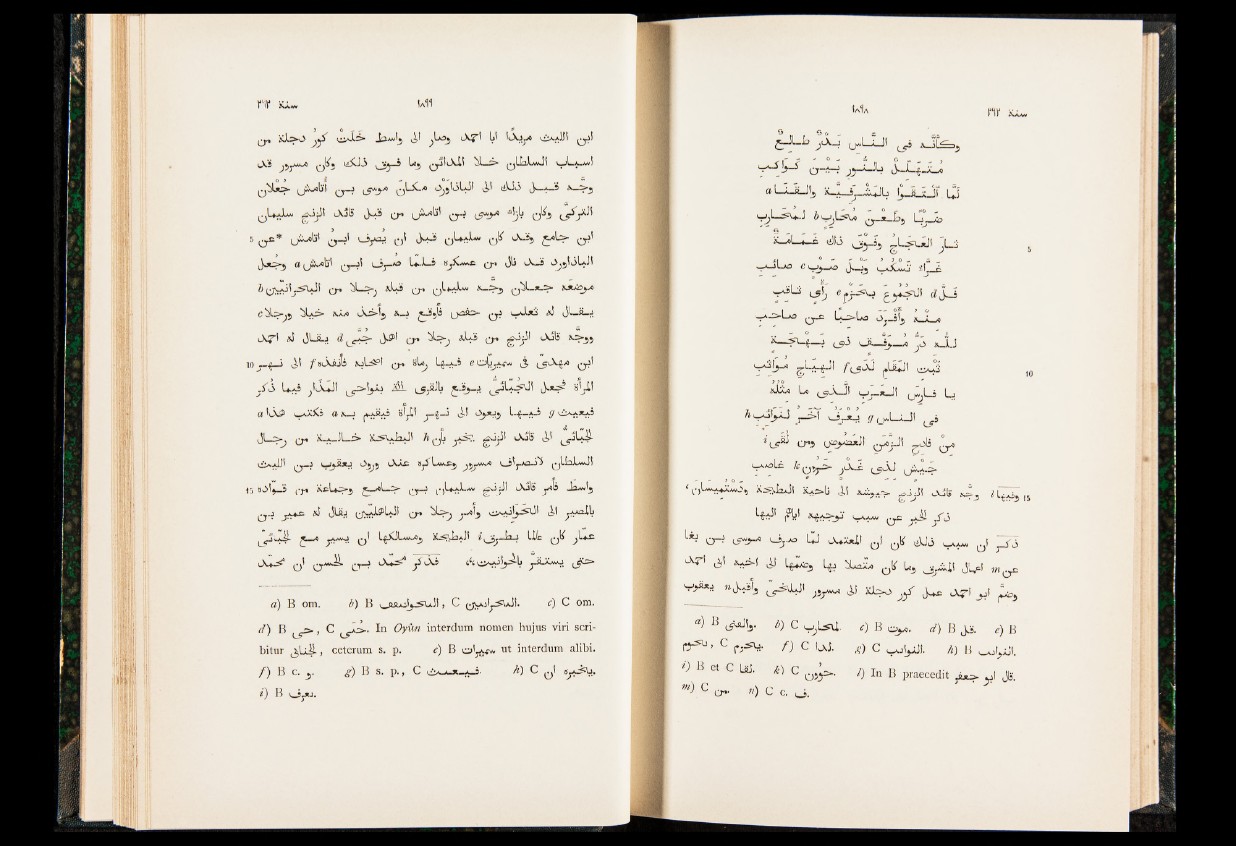 سنة ٢٦٢ ١٨٩٨
وكأنّه فى الناس بَدْرٌ طالِعٌ
مُتَهَلِّلٌ بالنُّور بَيْنَ كَوَاكِبِ
لَمَّا ٱلْتَقَوْا بالمَشْرَفِيَّةِ والقَنَا a
ضَرْبًا وطَعْنَ مُحَارِبٍ b لمُحَارِبِ
ثار العَجَاجُ وفَوْقَ ذاك غَمَامَةٌ 5
غَرَّاء تَسْكُبُ وَبْلَ صَوْبٍ c صائبِ
فَلَّ d الجُمُوعَ بحَزْمِ e رَأْيٍ ثاقبِ
مِنْهُ وأَفْرَدَ صاحبًا عن صاحبِ
للّه دَرُّ مُوَفَّقٍ ذى بَهْجَةٍ
ثَبْتِ المَقَامِ لَدَى f الهِيَاجِ مُوَاثِبِ 10
يا فارسَ العَرَبِ الَّذى ما مثْلُهُ
فى الناس g يُعْرَفُ آخَرٌ لنَوَائِبِ h
مِنْ فادحِ الزَّمَنِ العَضُوضِ ومن لُقَى i
جَيْشٍ لذى غَدْرٍ خَؤُونٍ k غاصبِ
وفيها l وجّه قائد الزنج جيوشه الى ناحية البطيحة ودَسْتُمِيسَان، 15
ذكر الخبر عن سبب توجيهه ايّاهم اليها
ذكر ان سبب ذلك كان ان المعتمد لمّا صرف موسى بن بغا
عن m اعمال المشرق وما كان متّصلا بها وضمّها الى اخيه ابى احمد
وضمّ ابو احمد عمل كور دجلة الى مسرور البلخىّ وأقبل n يعقوب
a) B والقنى. b) C بمحارب. c) B موت. d) B قل. e) B
بحوم, C بحزم. f) C لذا. g) C النوائب. h) B النوائب.
i) B et C لقا. k) C حؤون. l) In B praecedit قال ابو جعفر.
m) C من. n) C c. ف.
سنة ٢٦٢ ١٨٩٩
ابن الليث مريدًا ابا احمد وصار الى واسط خَلَتْ كُورُ دجلة من
اسباب السلطان خلا المدائن وما فوق ذلك وكان مسرور قد
وجّه قبل ذلك الى الباذاورد مكان موسى بن أتامش جُعْلانَ
التركىّ وكان بإزاء موسى بن اتامش من قبل قائد الزنج سليمان
ابن جامع وقد كان سليمان قبل ان يُصرف ابن اتامش *عن 5
الباذاورد قد نال من عسكره فلمّا صُرف ابن اتامش a وجُعل
موضعَه جعلان وجّه سليمان من قبله رجلا من البحرانيّين b
يقال له ثعلب بن حفص فأوقع به وأخذ منه خيلا ورجلا c
ووجّه قائد الزنج من قبله رجلا من اهل جُبَّى d يقال له احمد
ابن مهدىّ فى سميريّات e فيها رماة من اصحابه فأنفذه f الى نهر 10
المرأة فجعل الجُبّائىّ يوقع بالقرى التى بنواحى المذار فيما ذُكر
فيعيث g فيها ويعود الى نهر المرأة فيقيم به a فكتب هذا a
الجُبّائىّ الى قائد الزنج يخبر بأن h البطيحة خالية من رجال
السلطان لانصراف مسرور وعساكره عند ورود يعقوب بن الليث
واسط فأمر قائد الزنج سليمان بن جامع وجماعة من قوّاده 15
بالمصير الى الحَوَانيت وأمر رجلا من الباهليّين يقال له عمير بن
عمّار كان عالما بطرق i البطيحة ومسالكها ان يسير مع الجُبّائىّ
حتى يستقرّ بالحوانيت،، فذَكر محمّد بن الحسن ان محمّد
a) B om. b) B البحوانيف, C البحرانيين. c) C om.
d) B حى, C حُتّى. In Oyûn interdum nomen hujus viri scri-
bitur الجبائى, ceterum s. p. e) B سميرات ut interdum alibi.
f) B c. و. g) B s. p., C فيبعث. h) C يخبره ان.
i) B يعرف.